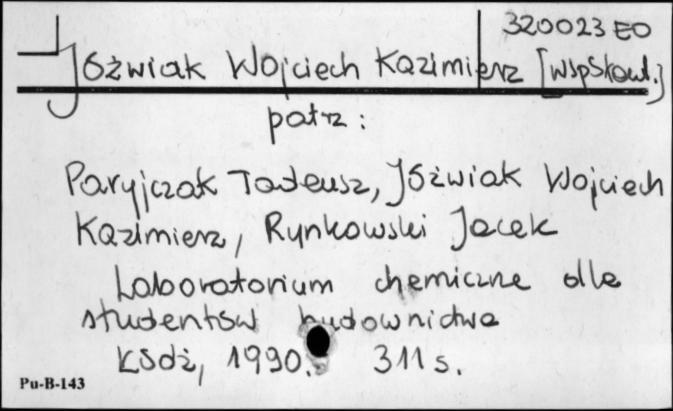 320023 EO
Jóźwiak Wojciech Kazimierz [wspskaut.]
patrz:
Paryjczak Tadeusz, Jóźwiak Wojciech
Kazimierz, Rynkowski Jacek
Laboratorium chemiczne dla
studentów budownictwa
Łódź, 1990. 311 s.
Pu-B-143